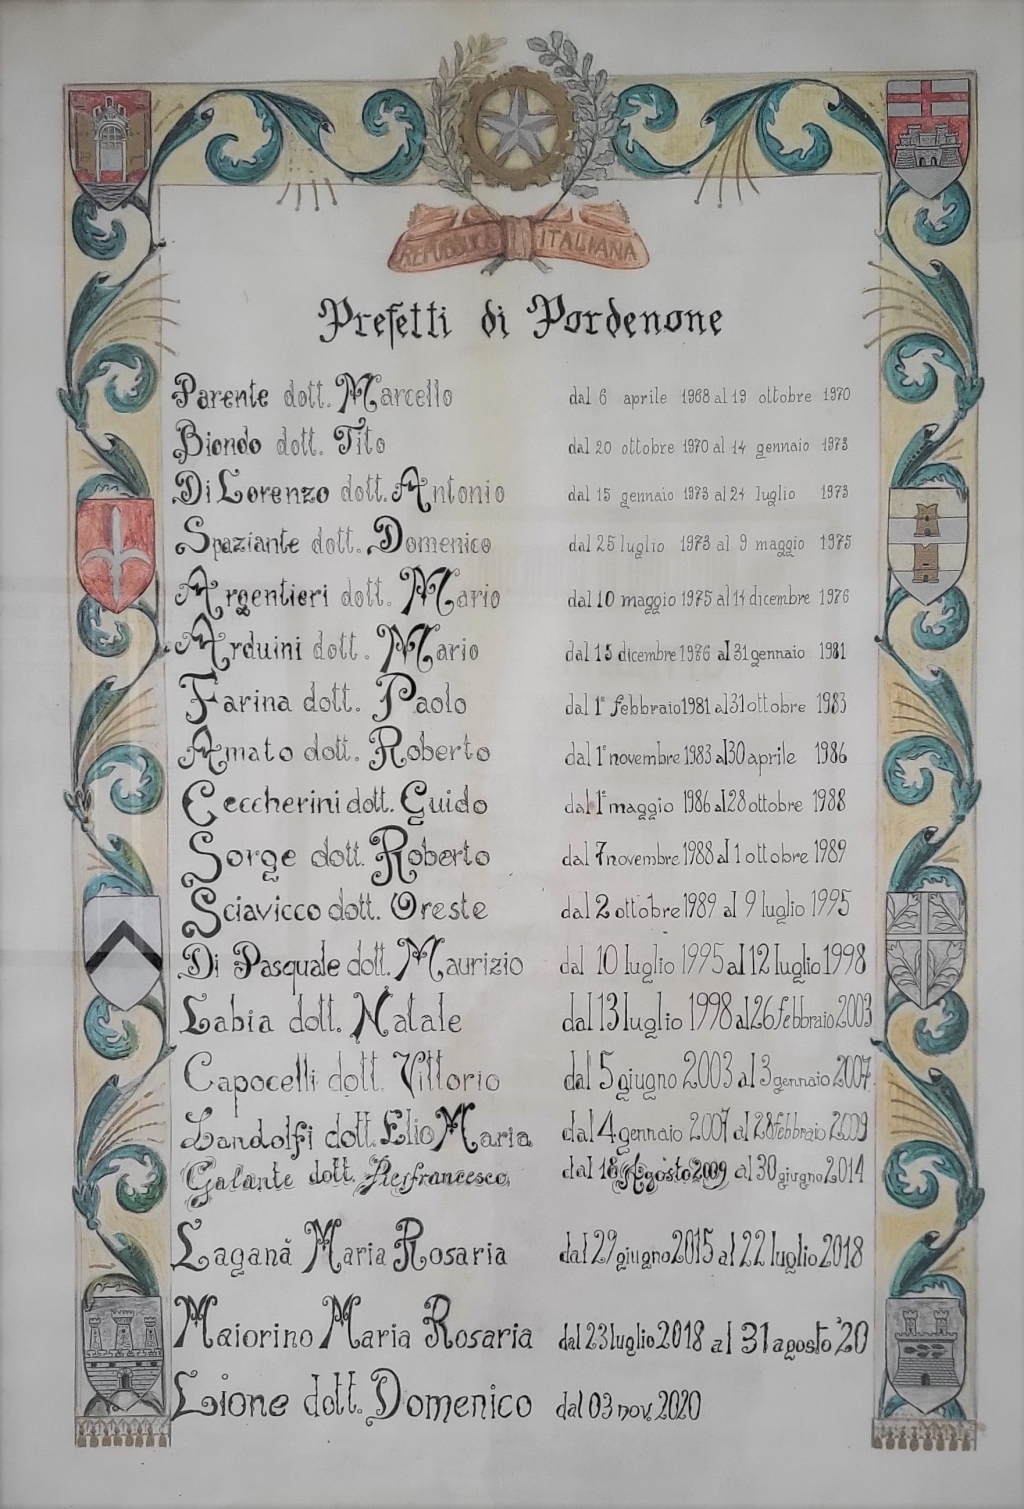 REPUBBLICA ITALIANA
Prefetti di Pordenone
Parente dott. Marcello dal 6 aprile 1968 al 19 ottobre 1970
Biondo dott. Tito dal 20 ottobre 1970 al 14 gennaio 1973
Di Lorenzo dott. Antonio dal 15 gennaio 1973 al 24 luglio 1973
Spaziante dott. Domenico dal 25 luglio 1973 al 9 maggio 1975
Argentieri dott. Mario dal 10 maggio 1975 al 14 dicembre 1976
Arduini dott. Mario dal 15 dicembre 1976 al 31 gennaio 1981
Farina dott. Paolo dal 1° febbraio 1981 al 31 ottobre 1983
Amato dott. Roberto dal 1° novembre 1983 al 30 aprile 1986
Ceccherini dott. Guido dal 1° maggio 1986 al 28 ottobre 1988
Sorge dott. Roberto dal 7 novembre 1988 al 1 ottobre 1989
Sciavicco dott. Oreste dal 2 ottobre 1989 al 9 luglio 1995
Di Pasquale dott. Maurizio dal 10 luglio 1995 al 12 luglio 1998
Labia dott. Natale dal 13 luglio 1998 al 26 febbraio 2003
Capocelli dott. Vittorio dal 5 giugno 2003 al 3 gennaio 2007
Landolfi dott. Elio Maria dal 4 gennaio 2007 al 28 febbraio 2009
Galante dott. Pierfrancesco dal 18 Agosto 2009 al 30 giugno 2014
Laganà Maria Rosaria dal 29 giugno 2015 al 22 luglio 2018
Maiorino Maria Rosaria dal 23 luglio 2018 al 31 agosto '20
Lione dott. Domenico dal 03 nov. 2020